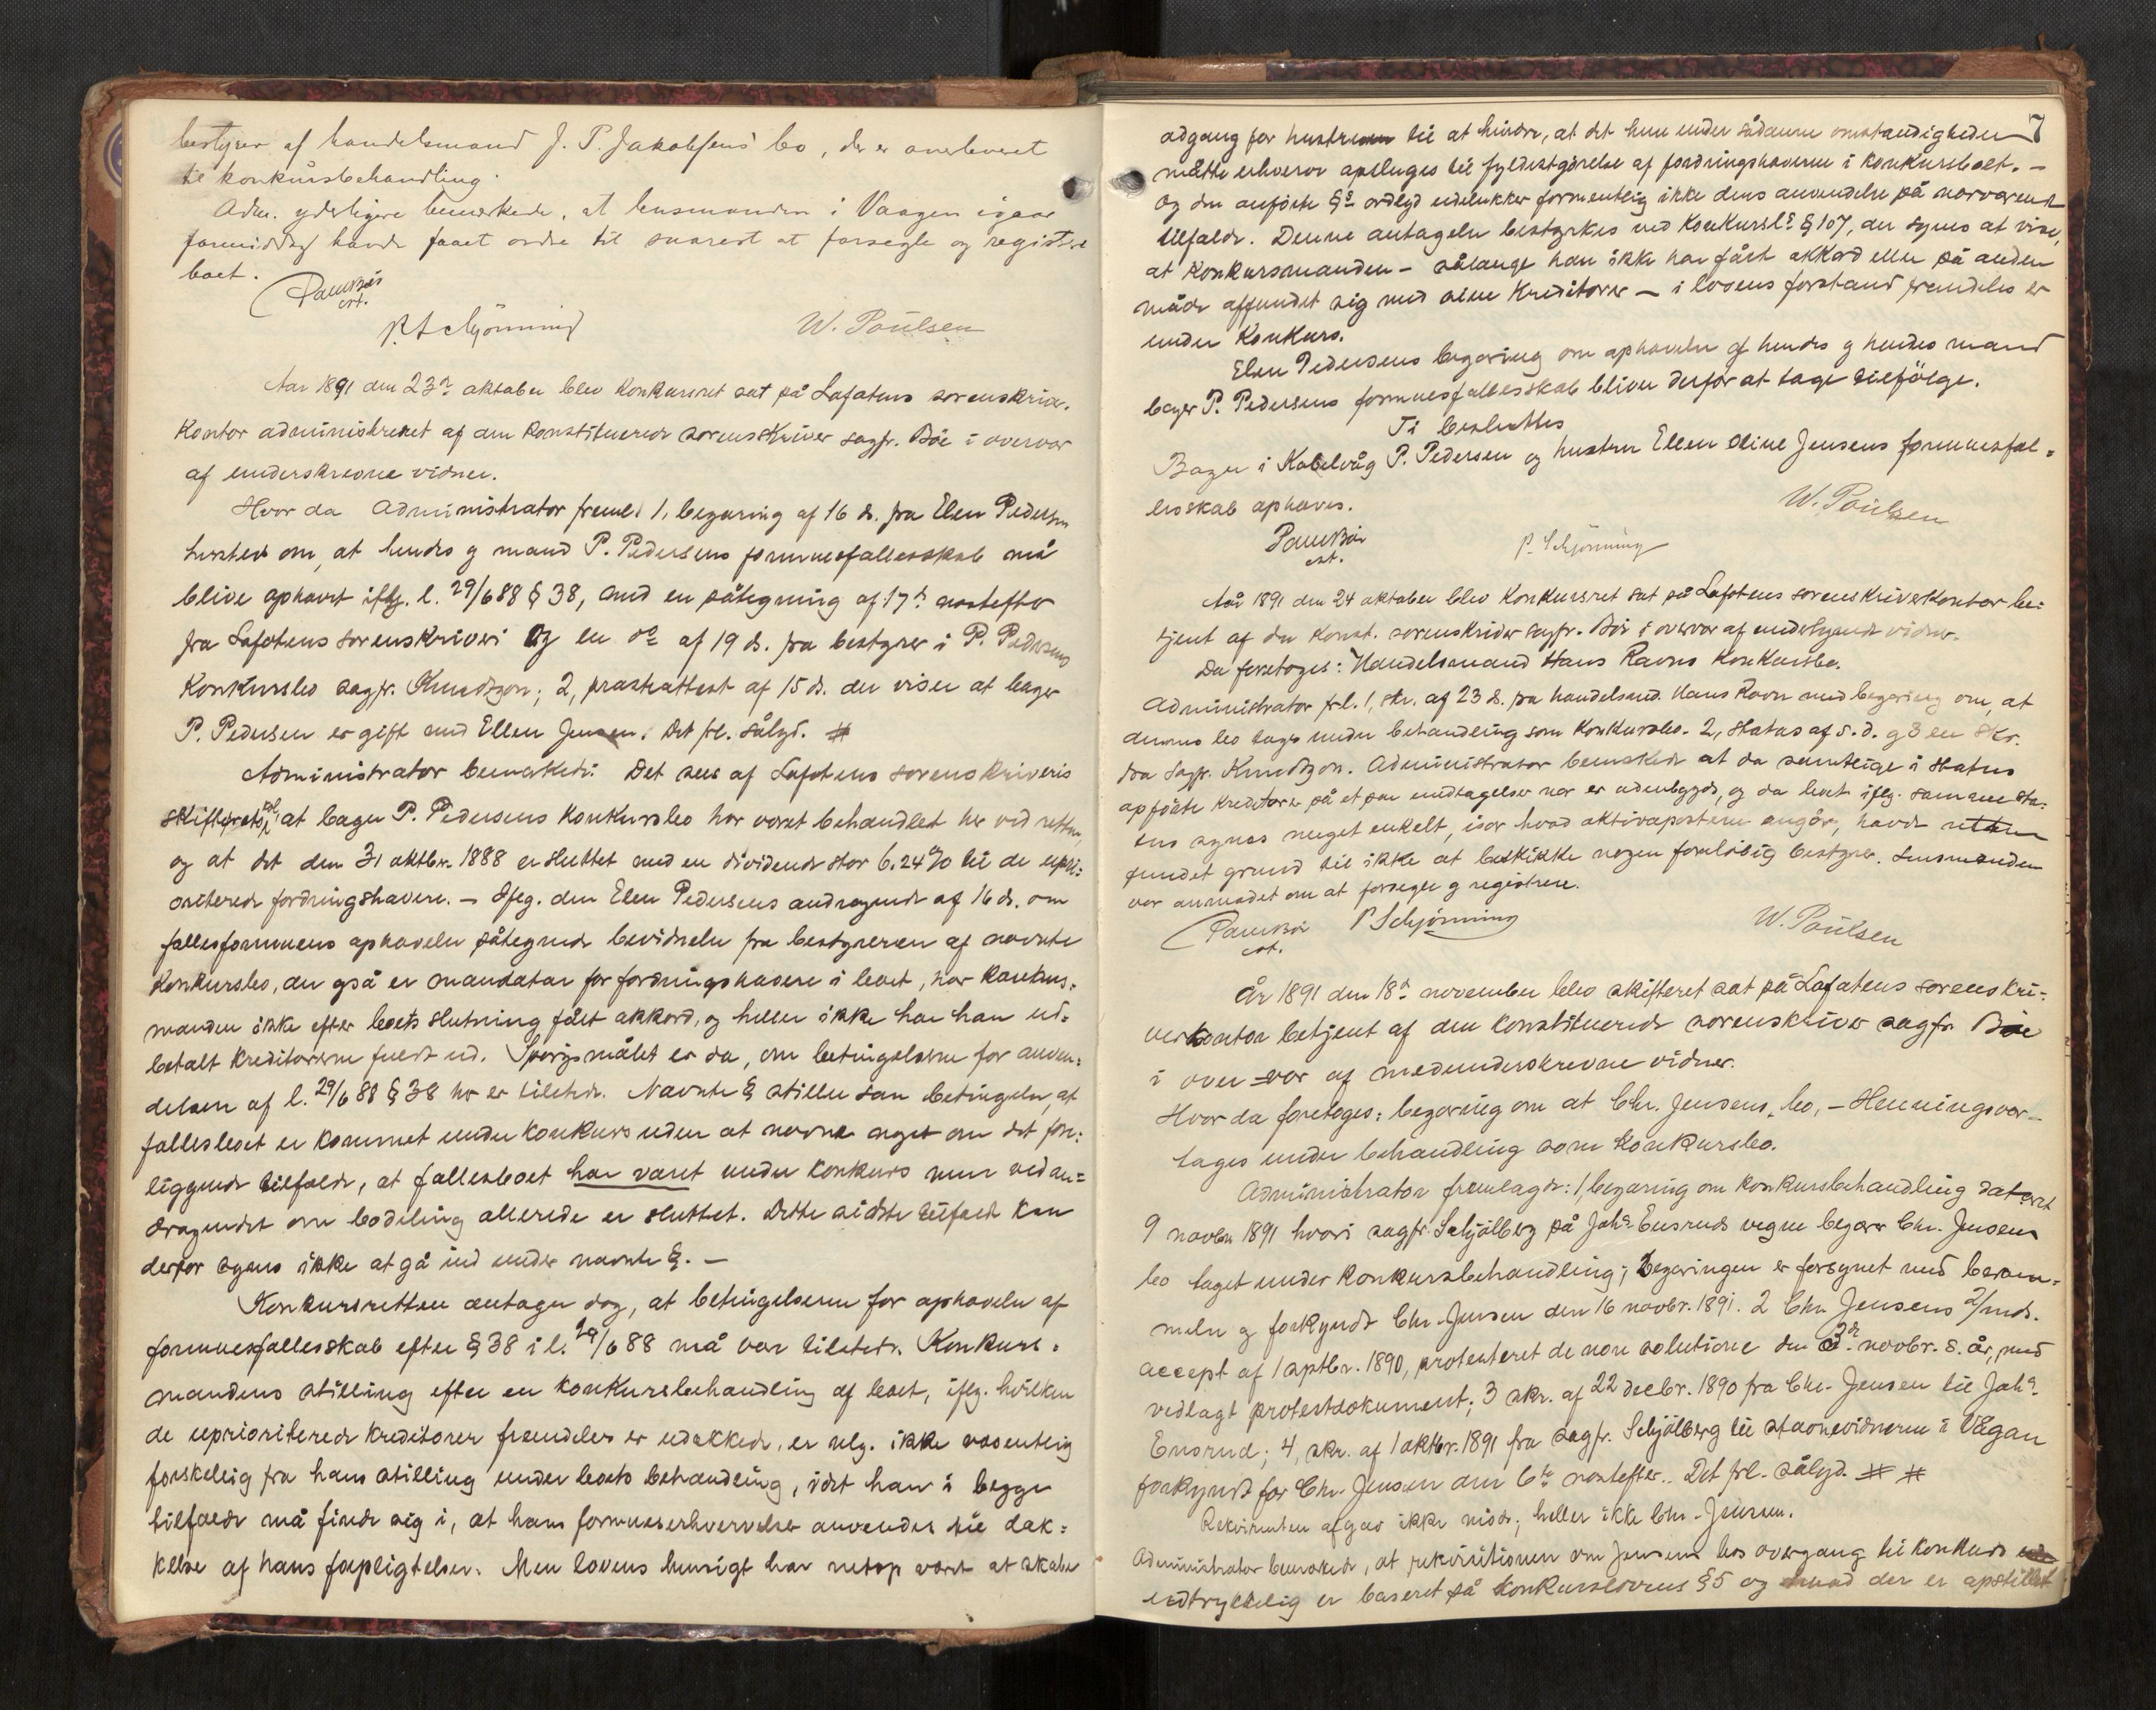 bestyrer af handelsmand J. P. Jakobsens bo, der er overleveret
til konkursbehandling.
Adm. yderligere bemerkede, at lensmanden i Vaagen igaar
formiddag havde faaet ordre til snarest at forsegle og registrere
boet.
cst.
P. Schjönning W. Poulsen
Aar 1891 den 23de oktober blev konkursret sat på Lofotens sorenskriv.
kontor administreret af den konstituerede sorenskriver sagfr. Böe i overvær
af underskrevne vidner.
Hvor da Administrator freml. 1, begæring af 16 ds. fra Elen Pedersen
om, at hendes og mand P. Pedersens formuesfællesskab må
blive ophævet iflg. l. 29/6 88 § 38, med en påtegning af 17de næstefter
fra Lofotens sorenskriveri og en do af 19 ds. fra bestyrer i P. Pedersens
konkursbo sagfr. Knudtzon; 2, prestattest af 15 ds. der viser at bager
P. Pedersen er gift med Ellen Jensen. Det frl. sålyd. #
Administrator bemerkede: Det sees af Lofotens sorenskriveris
skifteprotokol, at bager P. Pedersens konkursbo har været behandlet her ved retten,
og at det den 31 oktbr. 1888 er sluttet med en dividende stor 6.24 % til de upri=
oriterede fordringshavere. – Iflg. den Elen Pedersens andragende af 16 ds. om
fællesformuens ophævelse påtegnede bevidnelse fra bestyreren af nævnte
konkursbo, der også er mandatar for fordringshavere i boet, har konkurs=
manden ikke efter boets slutning fået akkord, og heller ikke har han ud=
betalt kreditorerne fuldt ud. Spörgsmålet er da, om betingelserne for anven=
delsen af l. 29/6 88 § 38 her er tilstede. Nævnte § stiller som betingelse, at
fællesboet er kommet under konkurs uden at nævne noget om det fore=
liggende tilfælde, at fællesboet har været under konkurs men ved an=
dragendet om bodeling allerede er sluttet. Dette sidste tilfælde kan
derfor synes ikke at gå ind under nævnte §. –
Konkursretten antager dog, at betingelserne for ophævelse af
formuesfællesskab efter § 38 i l. 29/6 88 må være tilstede. Konkurs=
mandens stilling efter en konkursbehandling af boet, iflg. hvilken
de uprioriterede kreditorer fremdeles er udækkede, er nlg. ikke væsentlig
forskellig fra hans stilling under boets behandling, idet han i begge
tilfælde må finde sig i, at hans formueserhvervelser anvendes til dæk=
kelse af hans forpligtelser. Men lovens hensigt har netop været at skabe
7
adgang for hustruen til at hindre, at det hun under sådanne omstændigheder
måtte erhverve opsluges til fyldestgörelse af fordringshaverne i konkursboet. –
Og den anförte §s ordlyd udelukker formentlig ikke dens anvendelse på nærværende
tilfælde. Denne antagelse bestyrkes ved konkursl.s § 107, der synes at vise,
at konkursmanden – sålænge han ikke har fået akkord eller på anden
måde affundet sig med sine kreditorer – i lovens forstand fremdeles er
under konkurs.
Elen Pedersens begæring om ophævelse af hendes og hendes mand
bager P. Pedersens formuesfællesskab bliver derfor at tage tilfölge.
Ti besluttes
Bager i Kabelvåg P. Pedersen og hustru Ellen Oline Jensens formuesfæl=
lesskab ophæves.
W. Poulsen
cst. P. Schjönning
Aar 1891 den 24 oktober blev konkursret sat på Lofotens sorenskriverkontor be=
tjent af den konst. sorenskriver sagfr. Böe i overvær af undertegnede vidner.
Da foretoges: Handelsmand Hans Ravns konkursbo.
Administrator frl. 1, skr. af 23 ds. fra handelsmd. Hans Ravn med begæring om, at
dennes bo tages under behandling som konkursbo. 2, status af s. d. og 3 en skr.
fra sagfr. Knudtzon. Administrator bemerkede at da samtlige i status
opförte kreditorer på et par undtagelser nær er udenbygds, og da boet iflg. samme sta=
tus synes meget enkelt, især hvad aktivaposterne angår, havde retten
fundet grund til ikke at beskikke nogen forelöbig bestyrer. Lensmanden
var anmodet om at forsegle og registrere.
cst. P Schjönning W. Poulsen
År 1891 den 18de november blev skifteret sat på Lofotens sorenskri=
verkontor betjent af den konstituerede sorenskriver sagfr. Böe
i overvær af medunderskrevne vidner.
Hvor da foretoges: begæring om at Chr. Jensens bo, – Henningsvær –
tages under behandling som konkursbo.
Administrator fremlagde: 1, begæring om konkursbehandling dateret
9 novbr. 1891 hvori sagfr. Schjölberg på Johs. Ensruds vegne begærer Chr. Jensens
bo taget under konkursbehandling; Begæringen er forsynet med beram=
melse og forkyndt Chr. Jensen den 16 novbr. 1891. 2 Chr Jensens 2/mds.
accept af 1 septbr. 1890, protesteret de non solutione den 3de novbr. s. år, med
vedlagt protestdokument; 3 skr. af 22 decbr. 1890 fra Chr. Jensen til Johs.
Ensrud; 4, skr. af 1 oktbr. 1891 fra sagfr. Schjölberg til stævnevidnerne i Vågan
forkyndt for Chr. Jensen den 6te næstefter. Det frl. sålyd. # #
Rekvirenten afgav ikke möde; heller ikke Chr. Jensen.
Administrator bemerkede, at rekvisitionen om Jensens bos overgang til konkurs
udtrykkelig er baseret på konkurslovens § 5 og hvad der er opstillet